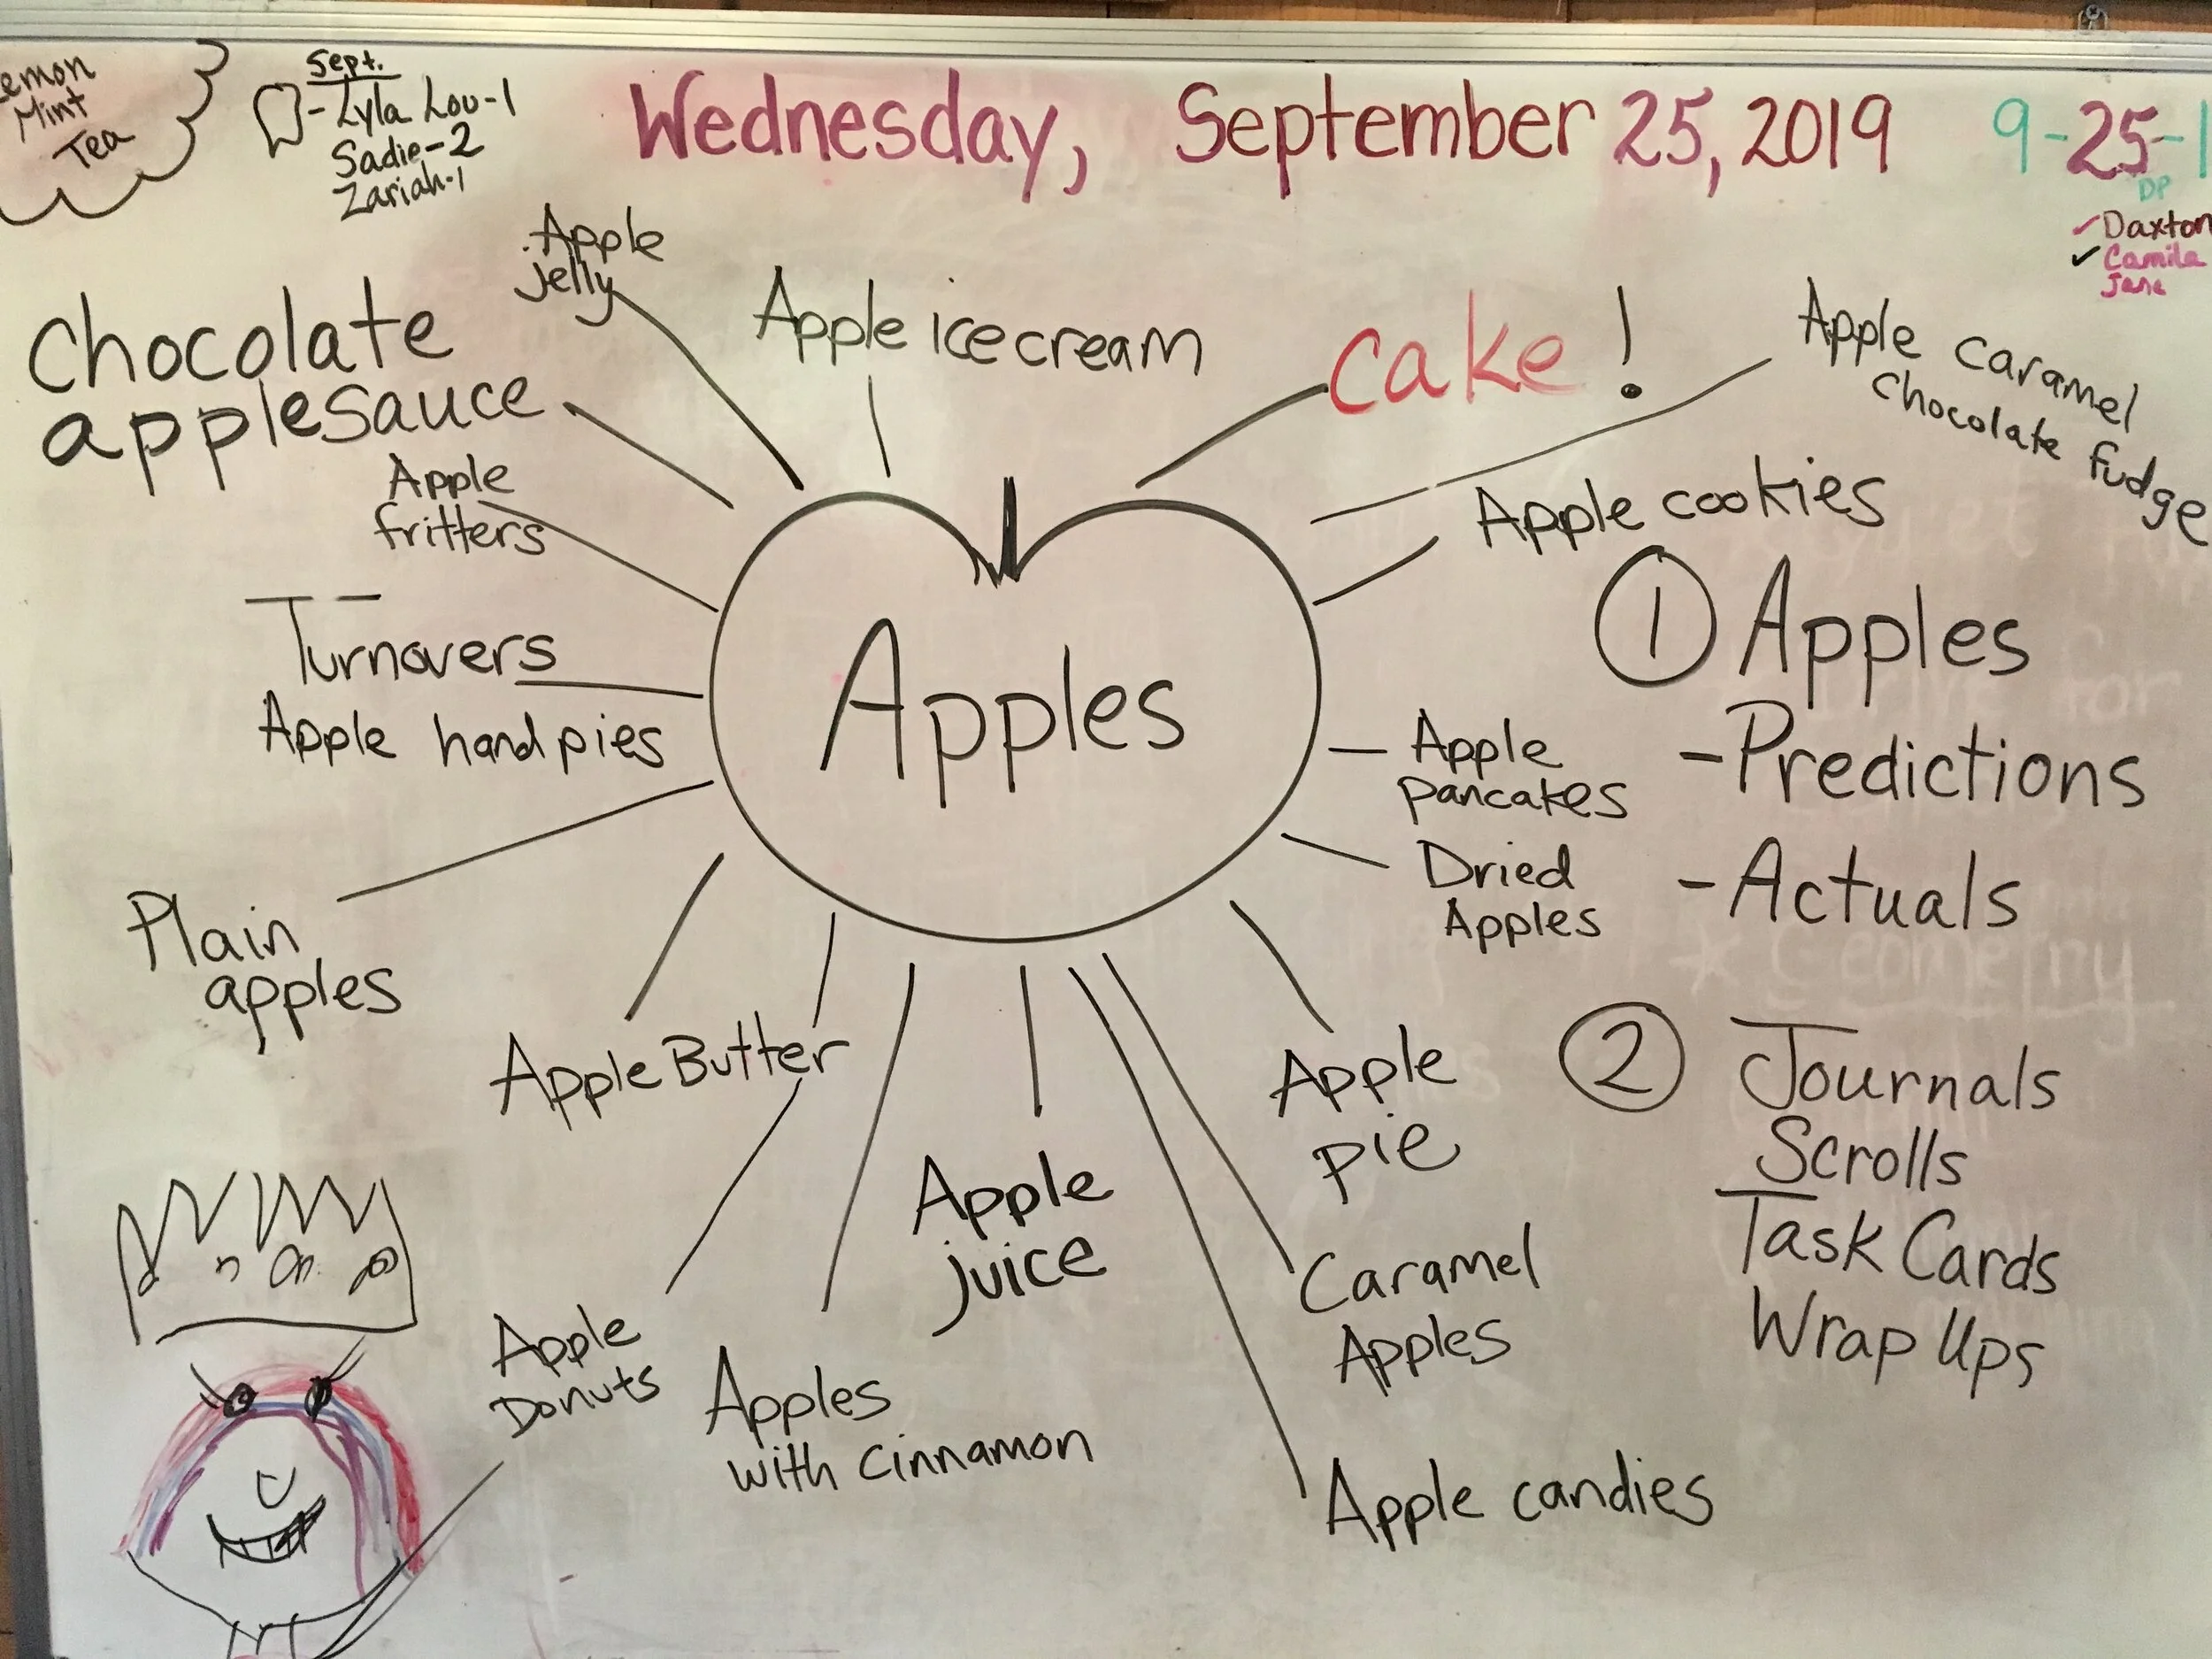 emon
Mint
Tea
Sept.
-Lyla Lou-1
Sadie-2
Zariah-1
Wednesday, September 25, 2019
9-25-1
DP
Daxton
Camila
Jane
Apple
jelly
Apple ice cream
cake!
Apple caramel
chocolate fudge
chocolate
applesauce
Apple
fritters
Turnovers
Apple hand pies
Plain
apples
Apple Butter
Apple
Donuts
Apples
with cinnamon
Apple
juice
Apples
Apple cookies
Apple
pancakes
Dried
Apples
Apple
pie
Caramel
Apples
Apple candies
1 Apples
-Predictions
-Actuals
* Geometry
2 Journals
Scrolls
Task Cards
Wrap Ups